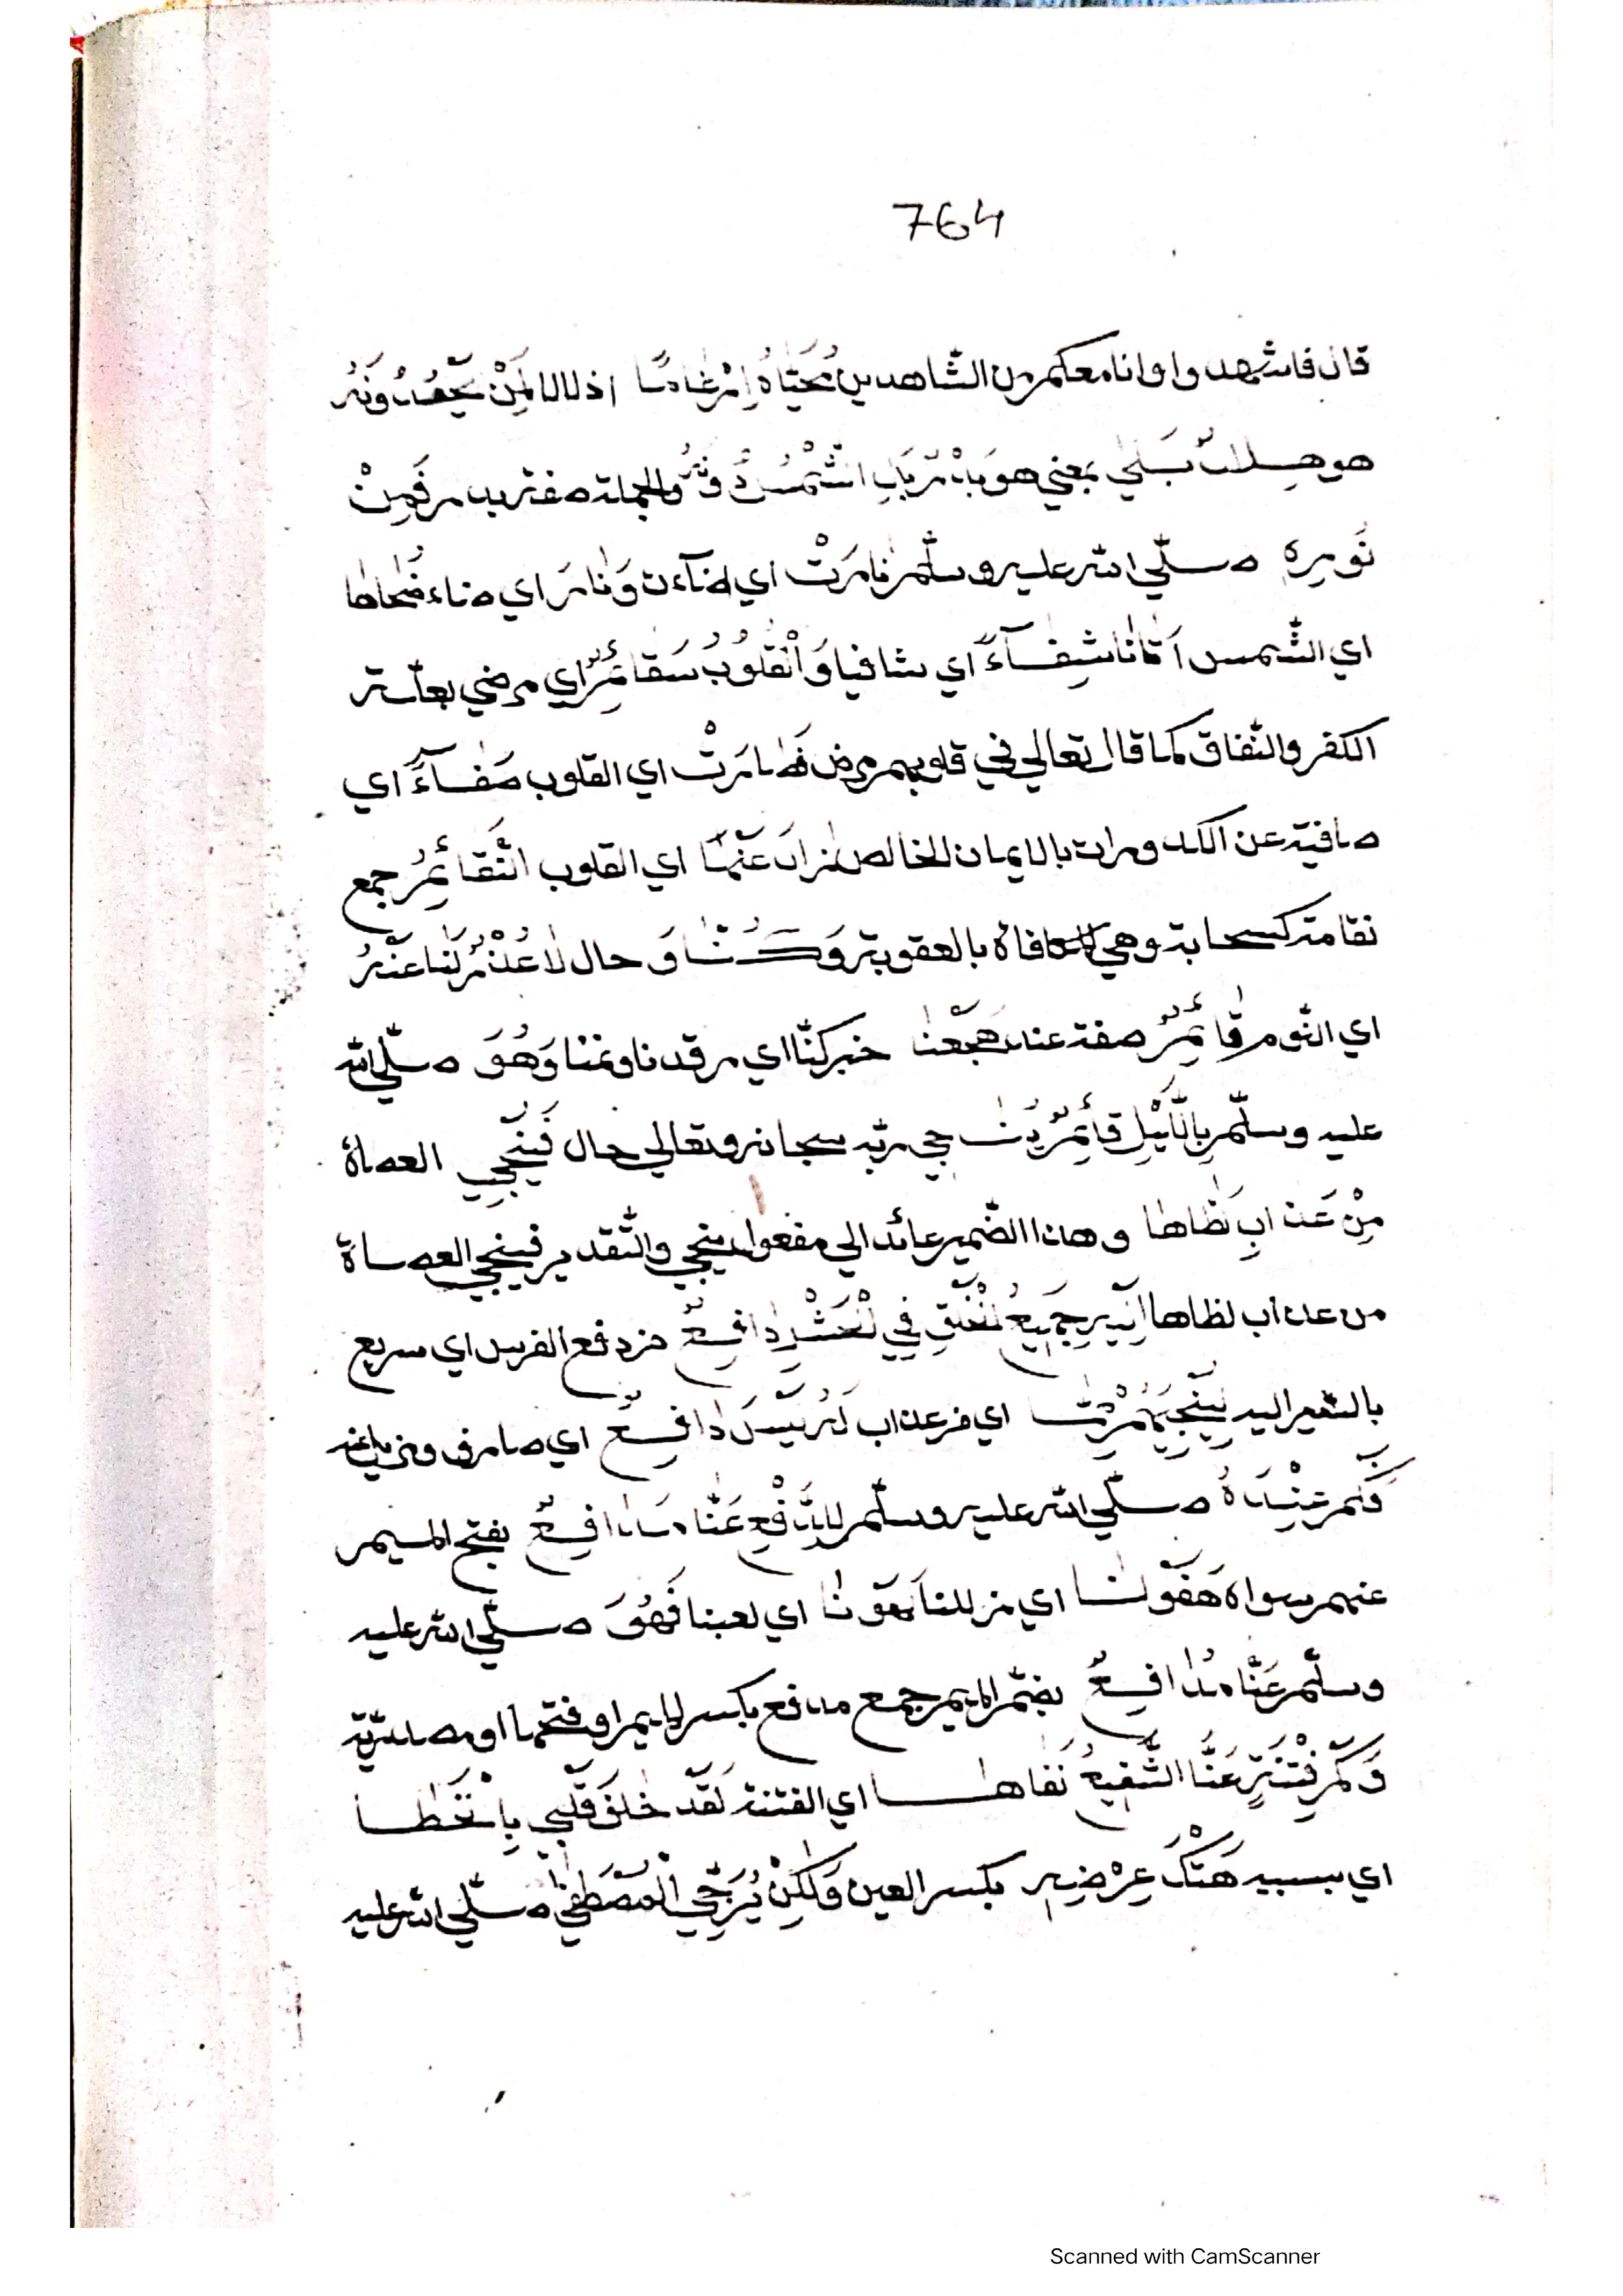 764
قال فاشهدوا وانا معكم من الشاهدين مُحَيَّاهُ اِرْغَامًا اذلالا لِمَنْ يَجْحَدُونَهُ
هو هِلَالٌ بَلٰي بمعني هو بَلْ الشَّمْسُ والجملة صفته فَمِنْ
نُورِهِ صلّي الله عليه وسلّم نَارَتْ اي اضآءت وَنَارَ اي ضاء ضُحَاهَا
اي الشّمس اَتَانَا شِفَآءً اي شافيا وَالْقُلُوبُ سَقَائِمُ اي مرضي بعلّة
الكفر والنّفاق كما قال تعالي في قلوبهم مرض فَصَارَتْ اي القلوب صَفَآءً اي
صافية عن الكدورات بالايمان الخالص زَالَ عَنْهَا اي القلوب النَّقَائِمُ جمع
نقامة كسحابة وهي المكافاة بالعقوبة وَكُنَّا وَ حال لَا عُذْرَ لَنَا عَنْهُ
اي النّوم قَائِمٌ صفة عذر هَجَعْنَا خبر كنّا اي رقدنا ونمنا وَهُوَ صلّي الله
عليه وسلّم بِاللَّيْلِ قَائِمٌ يُنَاجي ربّه سبحانه وتعالي حال فَيُنْجِي العصاة
مِنْ عَذَابِ لَظَاهَا وهذا الضّمير عائد الي مفعول ينجي والتّقدير فينجي العصاة
من عذاب لظاها اِلَيْهِ جَمِيعُ الْخَلْقِ فِي الْحَشْرِ دَافِعٌ من دفع الفرس اي سريع
بالسّير اليه لِيُنْجِيَهُمْ مِمَّا اي من عذاب لَهُ لَيْسَ دَافِعٌ اي صارف
فَكَمْ عِنْدَهُ صلّي الله عليه وسلّم لِلدَّفْعِ عَنَّا مَدَافِعٌ بفتح الميم
هَفَوْنَا اي زللنا لَهَوْنَا اي لعبنا فَهُوَ صلّي الله عليه
وسلّم عَنَّا مُدَافِعٌ بضمّ الميم جمع مدفع بكسر الميم او فتحها او مصدريّة
وَكَمْ فِتْنَةٍ عَنَّا الشَّفِيعُ نَفَاهَا اي الفتنة لَقَدْ خَلَقَ قَلْبِي بِالْخَطَا
اي بسببه هَتْكَ عِرْضِهِ بكسر العين وَلٰكِنْ يُرَجِّي الْمُصْطَفٰي صلّي الله عليه
Scanned with CamScanner